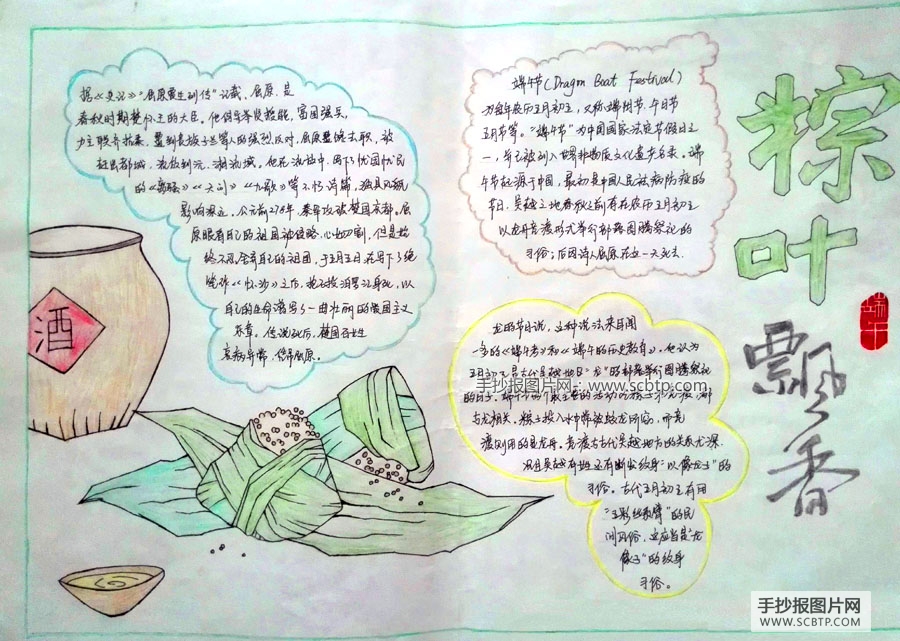 据《史记》"屈原贾生列传"记载，屈原，是
春秋时期楚怀王的大臣。他倡导举贤授能，富国强兵，
力主联齐抗秦，遭到贵族子兰等人的强烈反对，屈原遭馋去职，被
赶出都城，流放到沅、湘流域。他在流放中，写下了忧国忧民
的《离骚》《天问》《九歌》等不朽诗篇，独具风貌
影响深远。公元前278年，秦军攻破楚国京都。屈
原眼看自己的祖国被侵略，心如刀割，但是始
终不忍舍弃自己的祖国，于五月五日，在写下了绝
笔作《怀沙》之后，抱石投汨罗江身死，以
自己的生命谱写了一曲壮丽的爱国主义
乐章。传说死后，楚国百姓
哀痛异常，
屈原。
端午节(Dragon Boat Festival)
为每年农历五月初五，又称端阳节、午日节
五月节等。"端午节"为中国国家法定节假日之
一，并已被列入世界非物质文化遗产名录。端
午节起源于中国，最初是中国人民祛病防疫的
节日，吴越之地春秋之前有在农历五月初五
以龙舟竞渡形式举行部落图腾祭祀的
习俗；后因诗人屈原在这一天死去
龙的节日说，这种说法来自闻
一多的《端午考》和《端午的历史教育》。他认为
五月初五是古代吴越地区"龙"的部落举行图腾祭祀
的日子。
与龙相关。粽子投入水中常被蛟龙所窃，而竞
渡则用的是龙舟。竞渡与古代吴越地方的关系尤深
况且吴越百姓还有断发纹身"以像龙子"的
习俗。古代五月初五有用
"五彩丝系臂"的民
间风俗，这应当是"龙
像子"的纹身
习俗。
粽叶
飘香
端午
酒
手抄报图片网：www.scbtp.com
手抄报图片网
WWW.SCBTP.COM